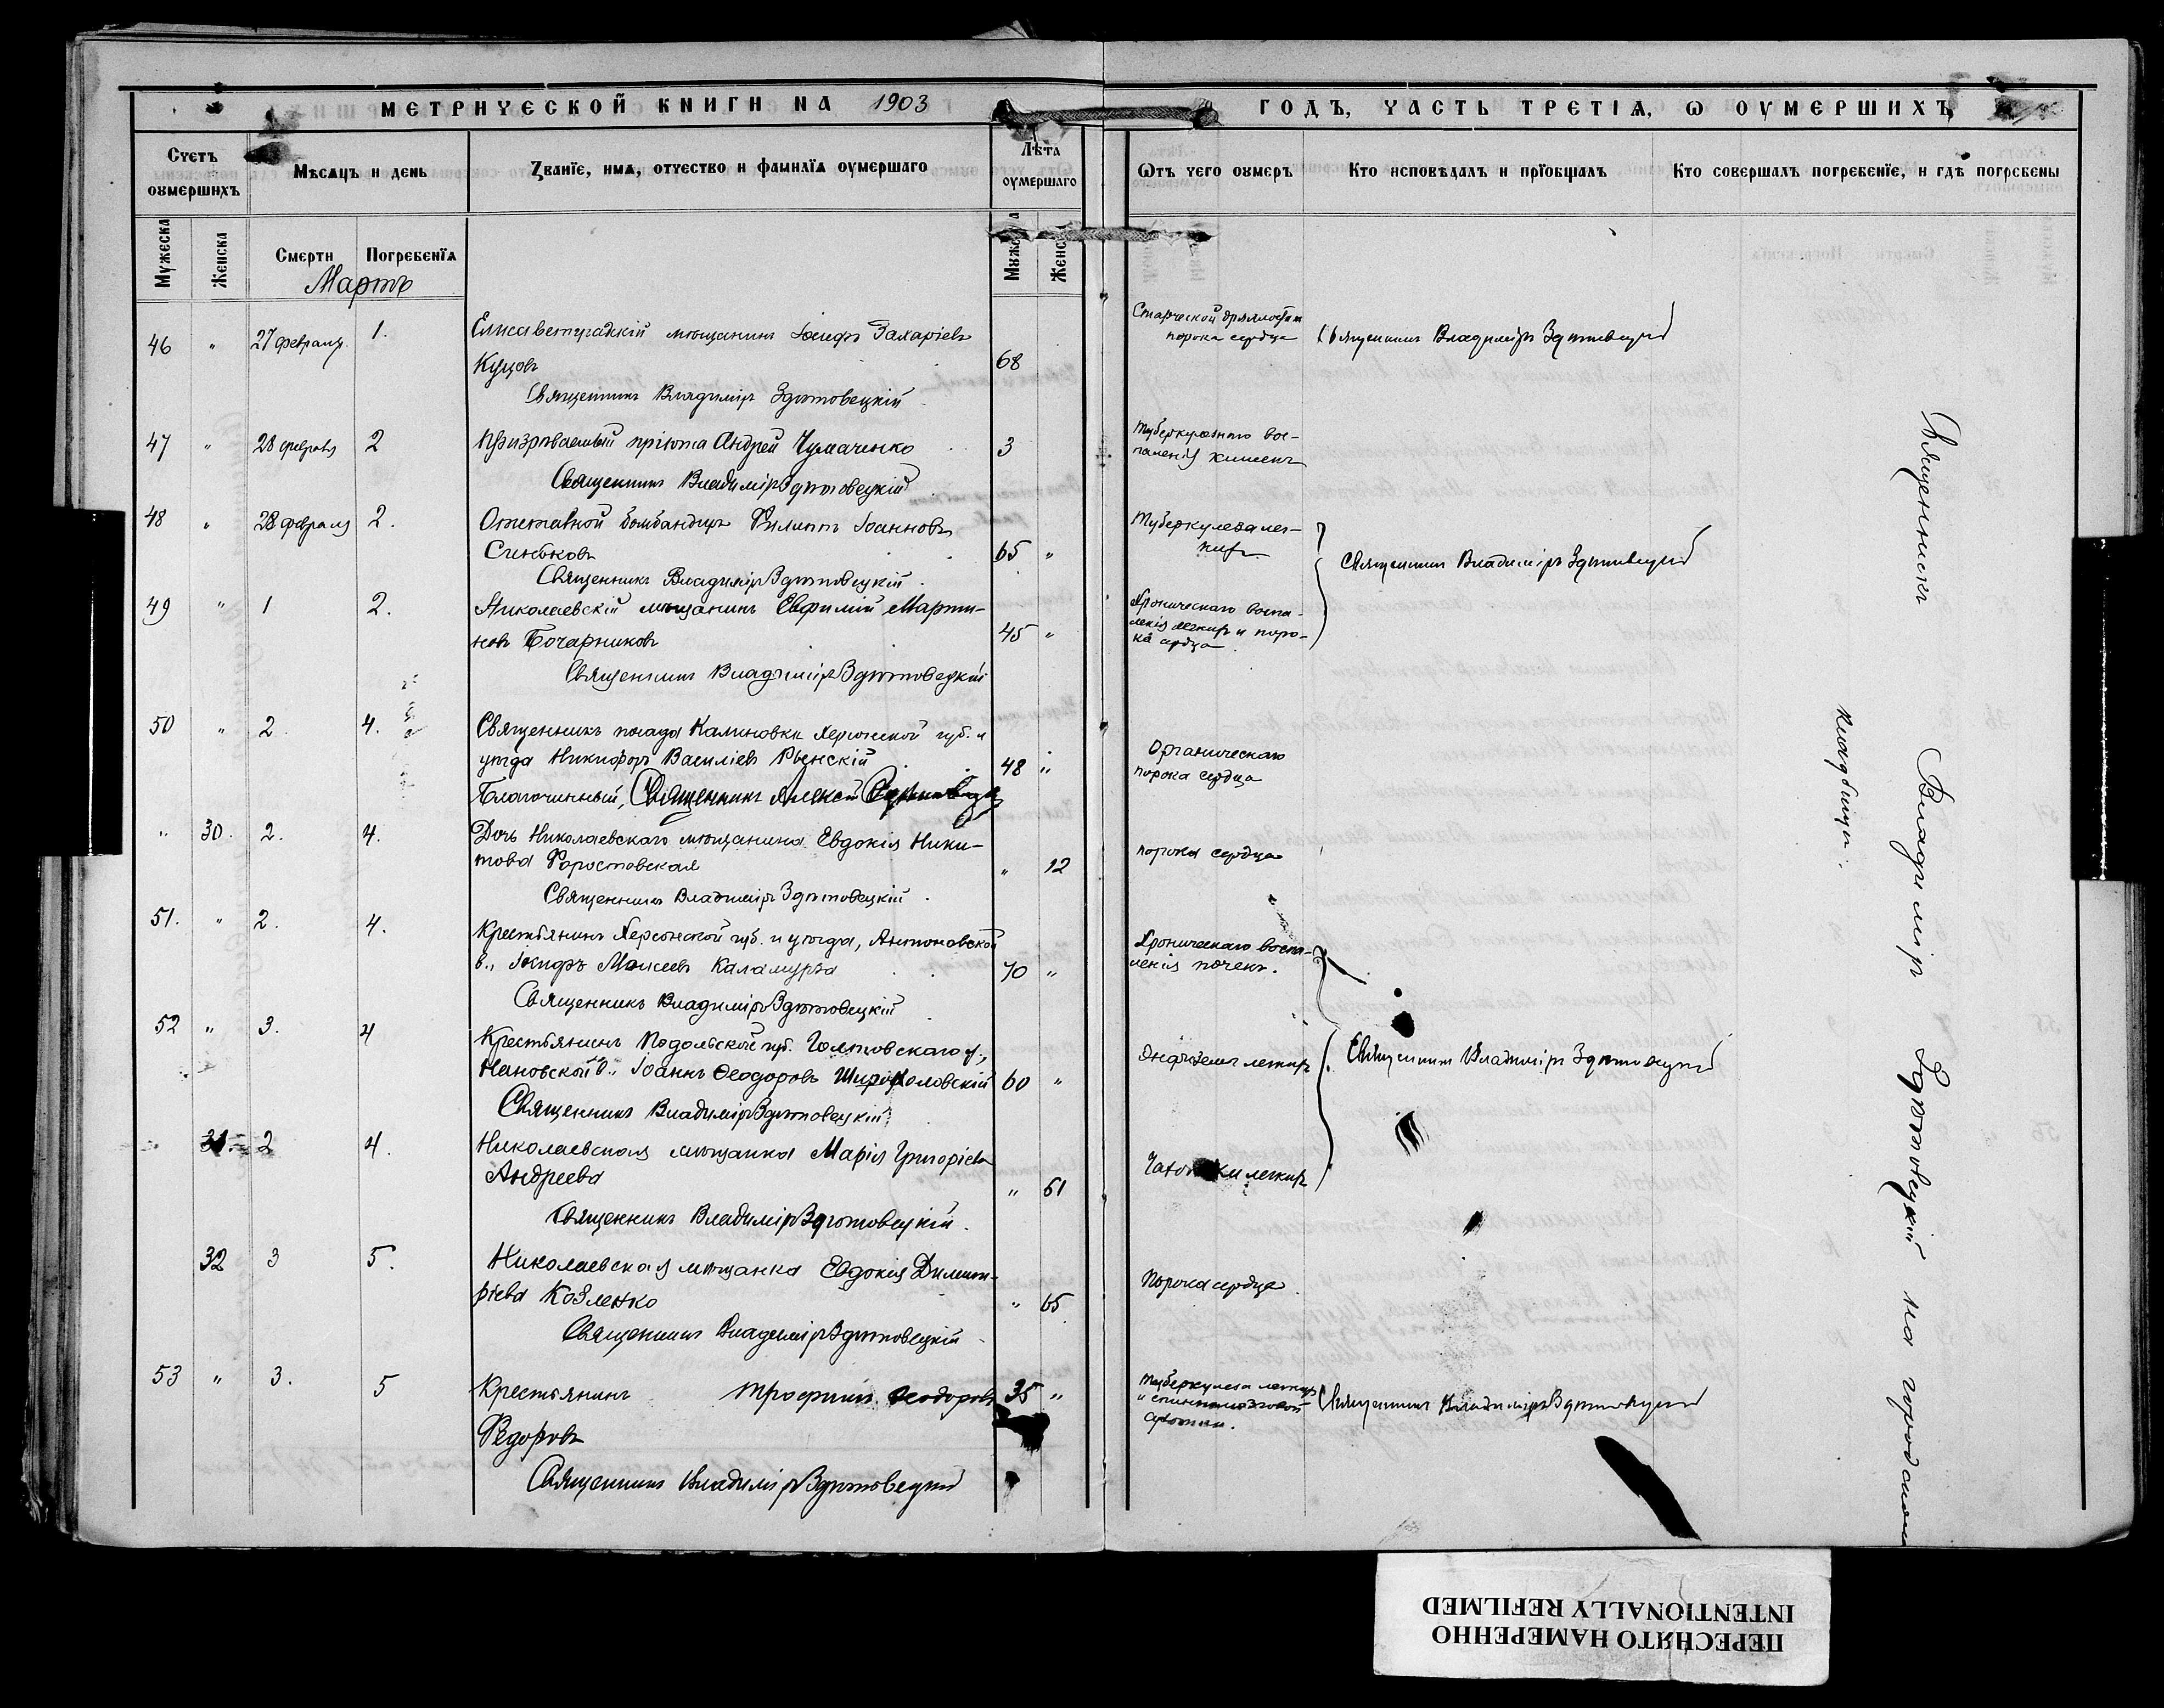 МЕТРИЧЕСКОЙ КНИГИ НА 1903 ГОДЪ, ЧАСТЬ ТРЕТІѦ, Ѡ ОУМЕРШИХЪ
Счетъ оумершихъ
Мѣсѧцъ и день
Званїе, имѧ, отчество и фамилїѧ оумершаго
Лѣта оумершаго
Ѿтъ чего оумеръ
Кто исповѣдалъ и прїобщалъ
Кто совершалъ погребенїе, и гдѣ погребены
Мужеска
Женска
Смерти
Погребенїѧ
Мартъ
46 " 27 февраля 1. Елисаветградскій мѣщанинъ Іосифъ Захаріевъ
Куцовъ 68
Священникъ Владиміръ Здѣтовецкій
Старческой дряхлости и
порока сердца
Священникъ Владиміръ Здѣтовецкій
47 " 28 февраля 2 Призрѣваемый пріюта Андрей Чумаченко 3
Священникъ Владиміръ Здѣтовецкій
Туберкулезнаго вос-
паленія кишекъ
48 " 28 февраля 2. Отставной бомбандиръ Филиппъ Іоанновъ
Синбковъ 65 "
Священникъ Владиміръ Здѣтовецкій
Туберкулеза лег-
кихъ
Священникъ Владиміръ Здѣтовецкій
49 " 1 2. Николаевскій мѣщанинъ Евфимій Марти-
новъ Бочарниковъ 45 "
Священникъ Владиміръ Здѣтовецкій
Хроническаго воспа-
ленія легкихъ и поро-
ка сердца
50 " 2 4. Священникъ посада Калиновки Херсонской губ. и
уѣзда Никифоръ Василіевъ Рыенскій 48 "
Благочинный, Священникъ Алексій
Органическаго
порока сердца
" 30. 2. 4. Дочь Николаевскаго мѣщанина Евдокія Ники-
това Форостовская " 12
Священникъ Владиміръ Здѣтовецкій
порока сердца
51. " 2. 4. Крестьянинъ Херсонской губ. и уѣзда, Антоновской
в., Іосифъ Моисеевъ Каламурза 70 "
Священникъ Владиміръ Здѣтовецкій
Хроническаго воспа-
ленія почекъ.
52 " 3. 4 Крестьянинъ Подольской губ. у.,
в., Іоаннъ Ѳеодоровъ 60 "
Священникъ Владиміръ Здѣтовецкій
легкихъ
Священникъ Владиміръ Здѣтовецкій
31. 2 4. Николаевская мѣщанка Марія Григоріева
Андреева " 61
Священникъ Владиміръ Здѣтовецкій
легкихъ
32 3 5. Николаевская мѣщанка Евдокія Димит-
ріева Козленко " 65
Священникъ Владиміръ Здѣтовецкій
Порока сердца
53 " 3. 5 Крестьянинъ Трофимъ Ѳеодоровъ 35 "
Федоровъ
Священникъ Владиміръ Здѣтовецкій
Туберкулеза легкихъ
и спинномозговой
Священникъ Владиміръ Здѣтовецкій
Священникъ Владиміръ Здѣтовецкій на городскомъ
кладбищѣ.
ПЕРЕСНЯТО НАМЕРЕННО
INTENTIONALLY REFILMED